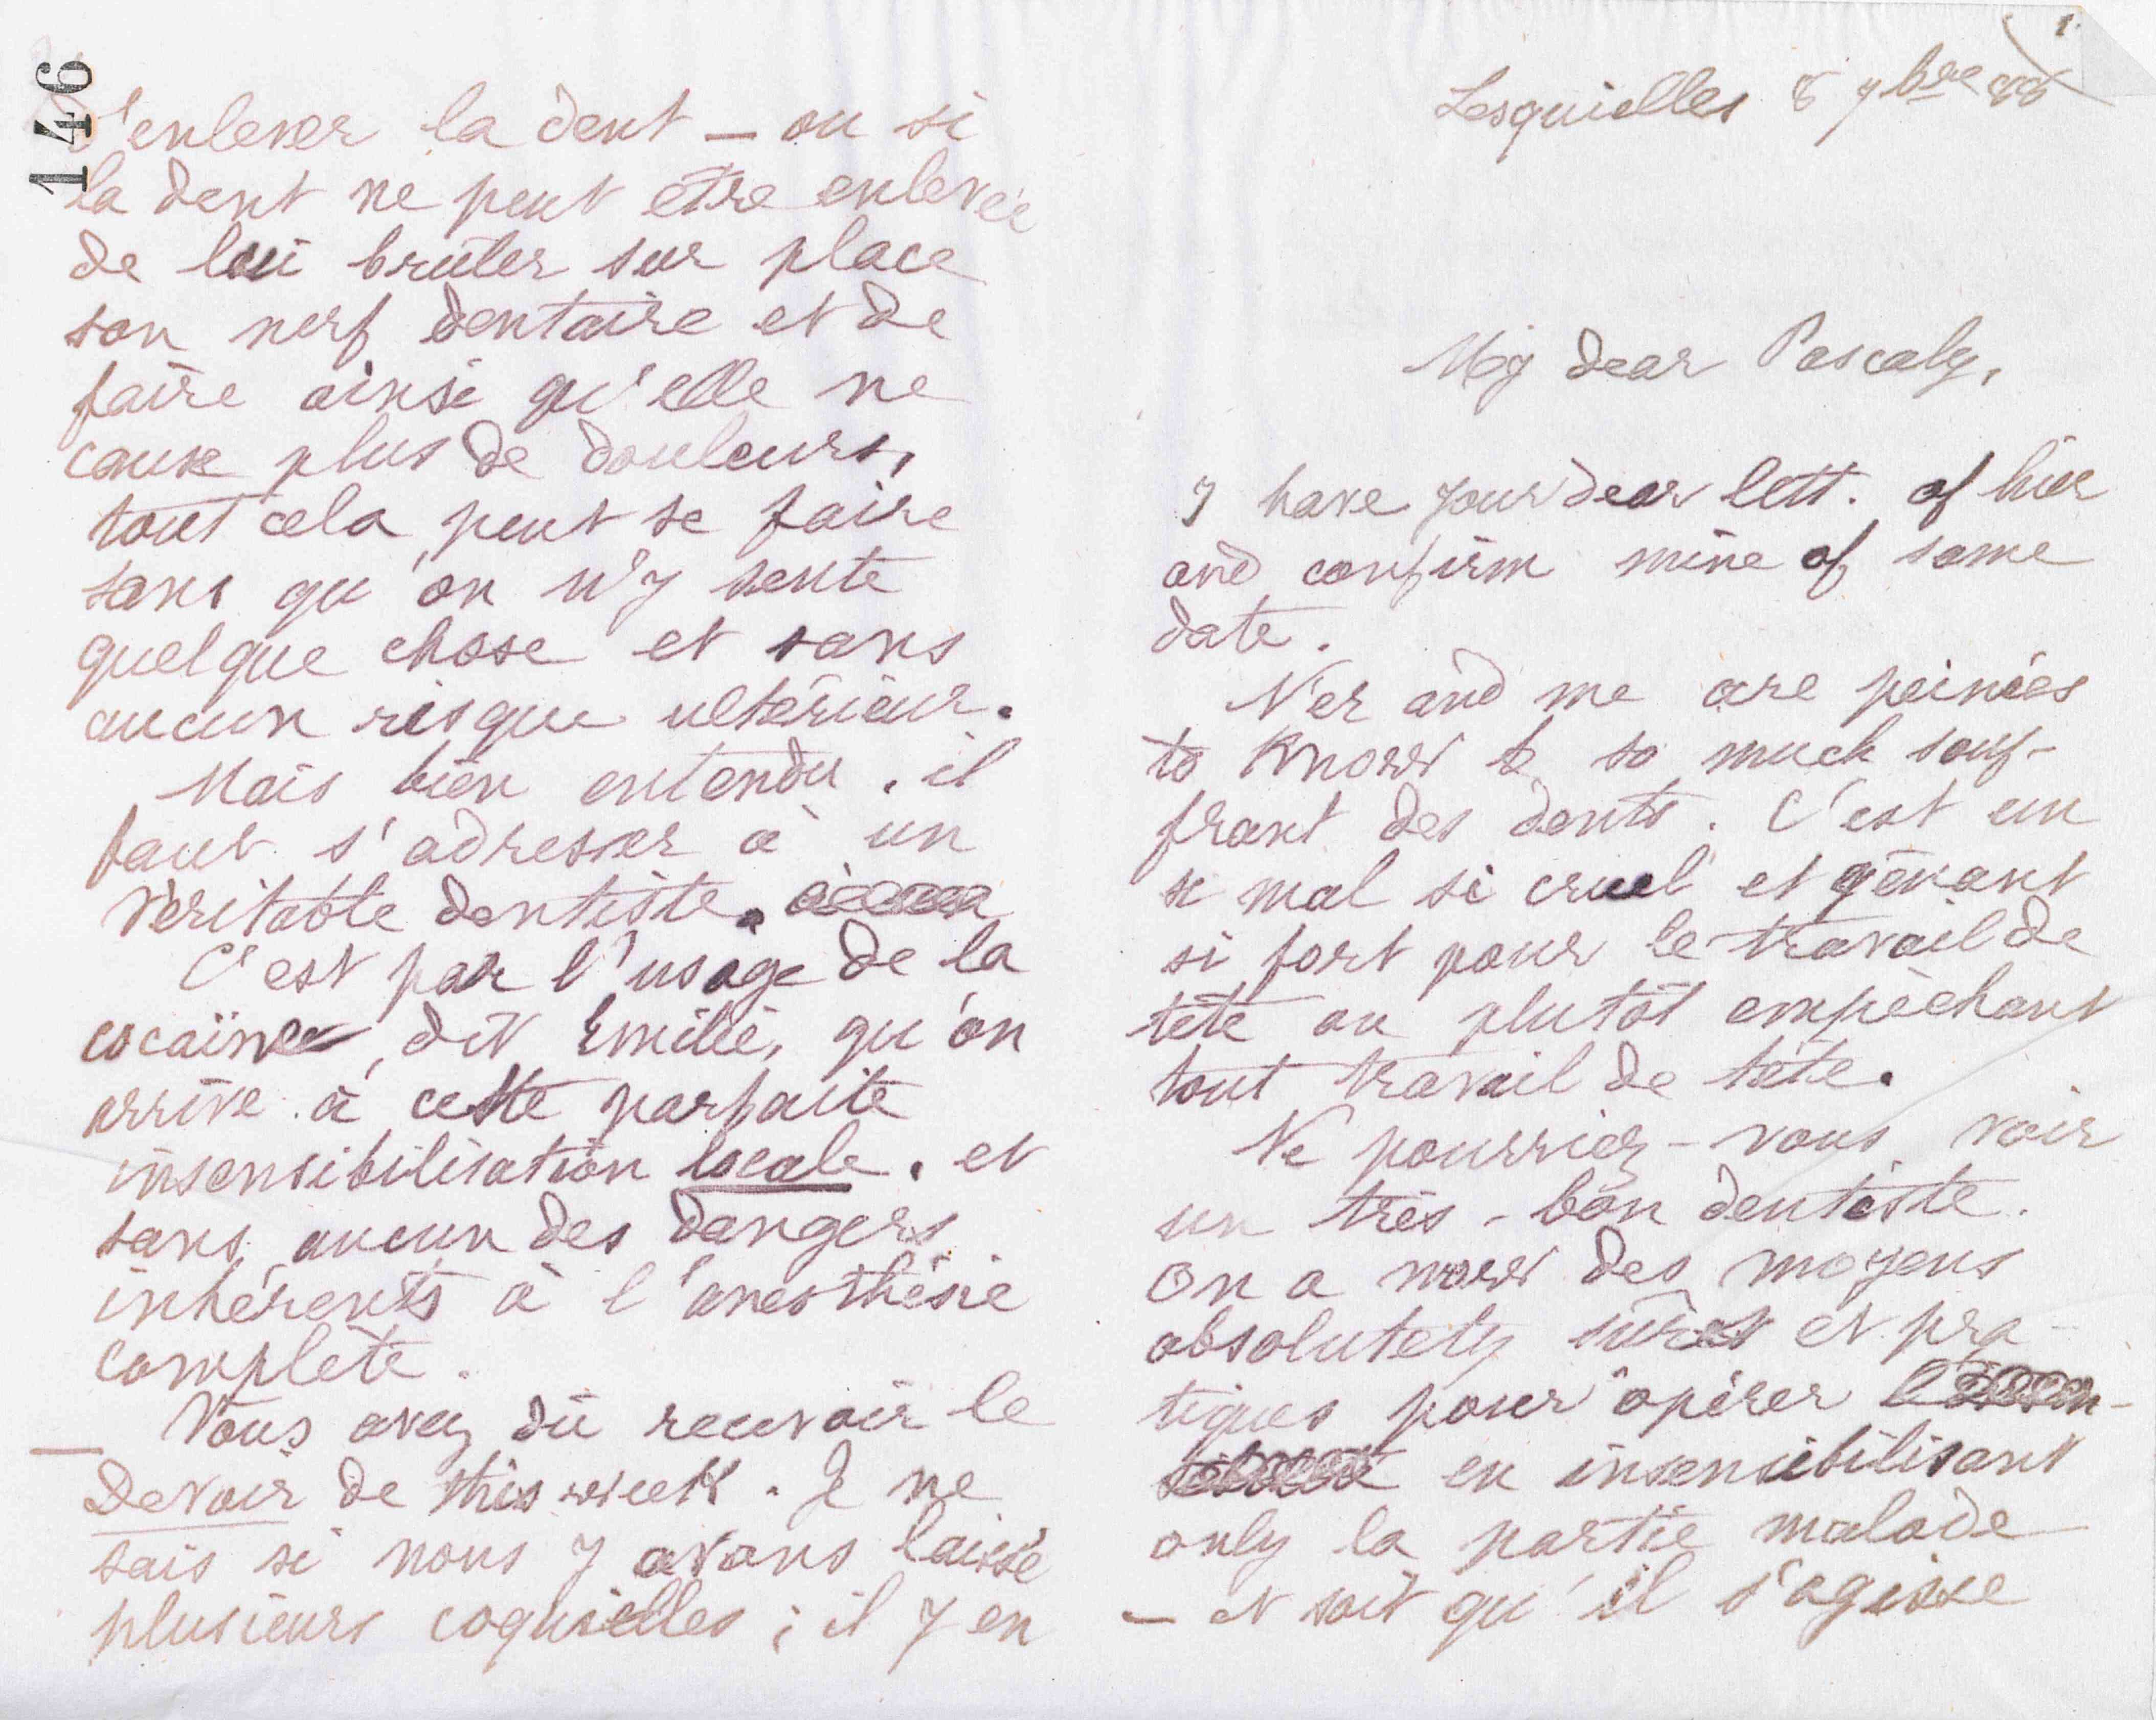 1.
Lesquielles 8 9bre 88
My dear Pascaly,
I have your dear lett. of hier
and confirm mine of same
date.
N'er and me are peinées
to know so much souf-
frant des dents. C'est un
si mal si cruel et gênant
si fort pour le travail de
tête ou plutôt empêchant
tout travail de tête.
Ne pourriez-vous voir
un très-bon dentiste.
On a now des moyens
absolutely sûrs et pra-
tiques pour opérer
en insensibilisant
only la partie malade
— et soit qu'il s'agisse
146
d'enlever la dent — ou si
la dent ne peut etre enlevée
de lui brûler sur place
son nerf dentaire et de
faire ainsi qu'elle ne
cause plus de douleurs,
tout cela peut se faire
sans qu'on n'y sente
quelque chose et sans
aucun risque ultérieur.
Mais bien entendu, il
faut s'adresser à un
véritable dentiste.
C'est par l'usage de la
cocaïne, dit Emilie, qu'on
arrive à cette parfaite
insensibilisation locale. et
sans aucun des dangers
inhérents à l'anesthésie
complète.
— Vous avez dû recevoir le
Devoir de this week. Je ne
sais si nous y avons laissé
plusieurs coquielles ; il y en